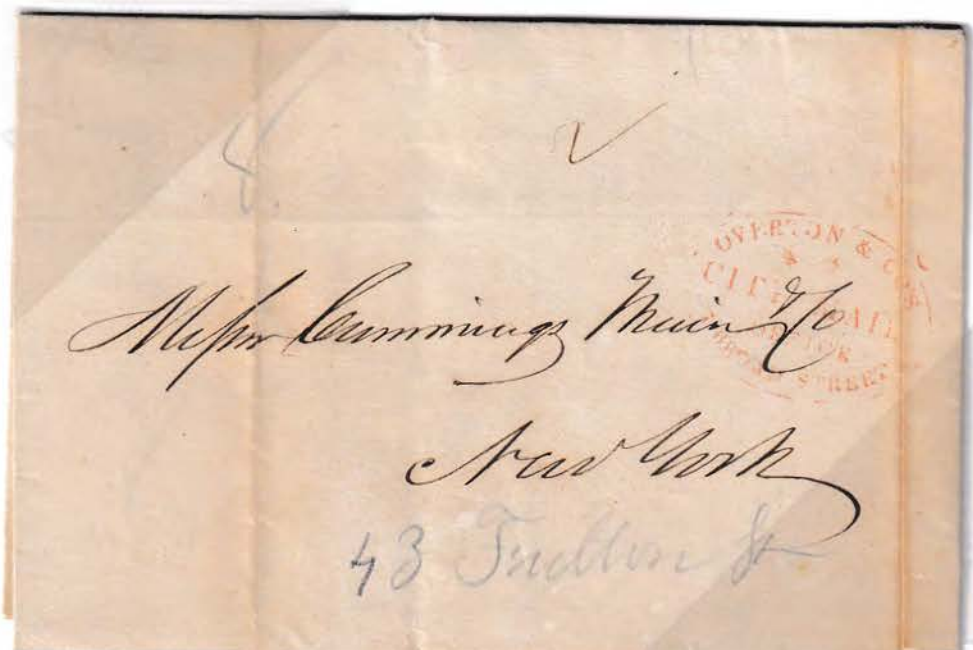 8.
OVERTON & CO'S
CITY MAIL
STREET
Messrs Cummings Main & Co
New York
43 Fulton St